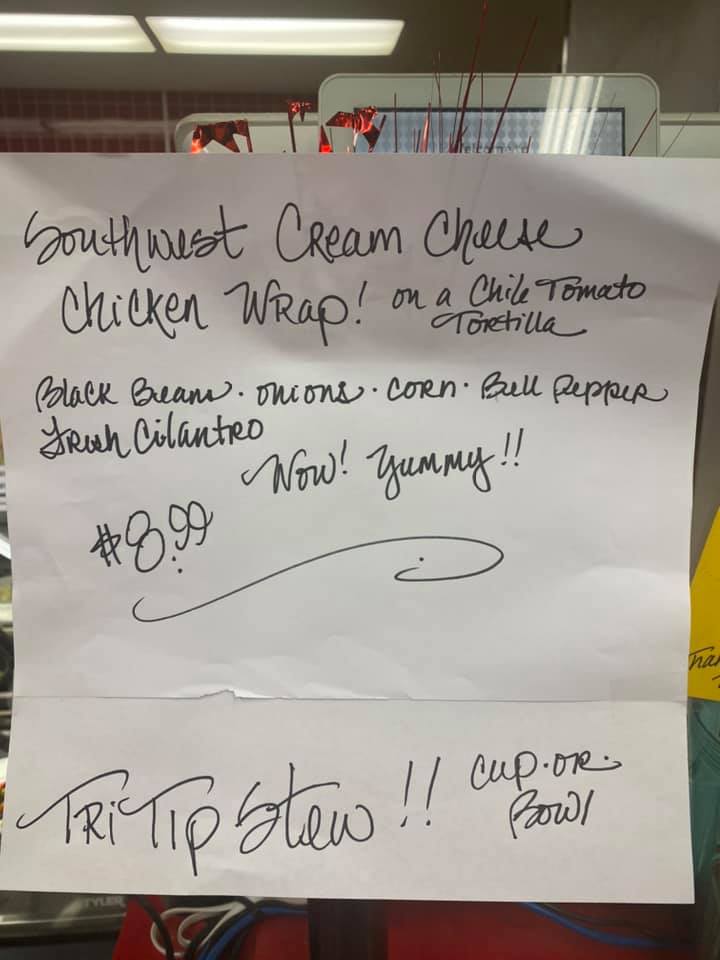 Southwest Cream Cheese
Chicken Wrap! on a Chile Tomato
Tortilla
Black Beans · onions · corn · Bell Pepper
Fresh Cilantro
Wow! Yummy!!
$8.99
Tri Tip Stew!! cup · or ·
Bowl
TYLER